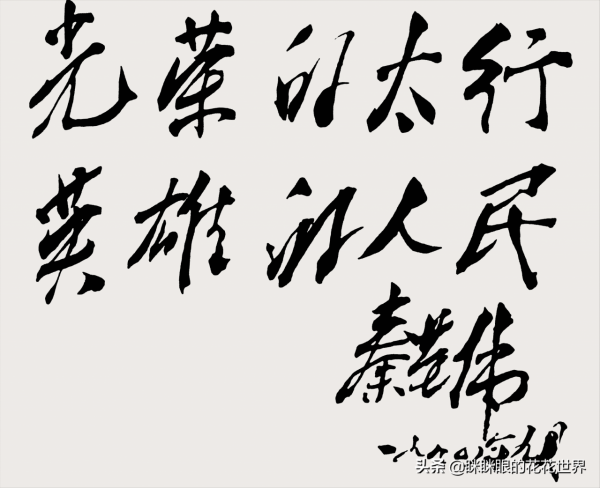 光荣的太行
英雄的人民
秦基伟
一九九〇年九月
头条 @眯眯眼的花花世界